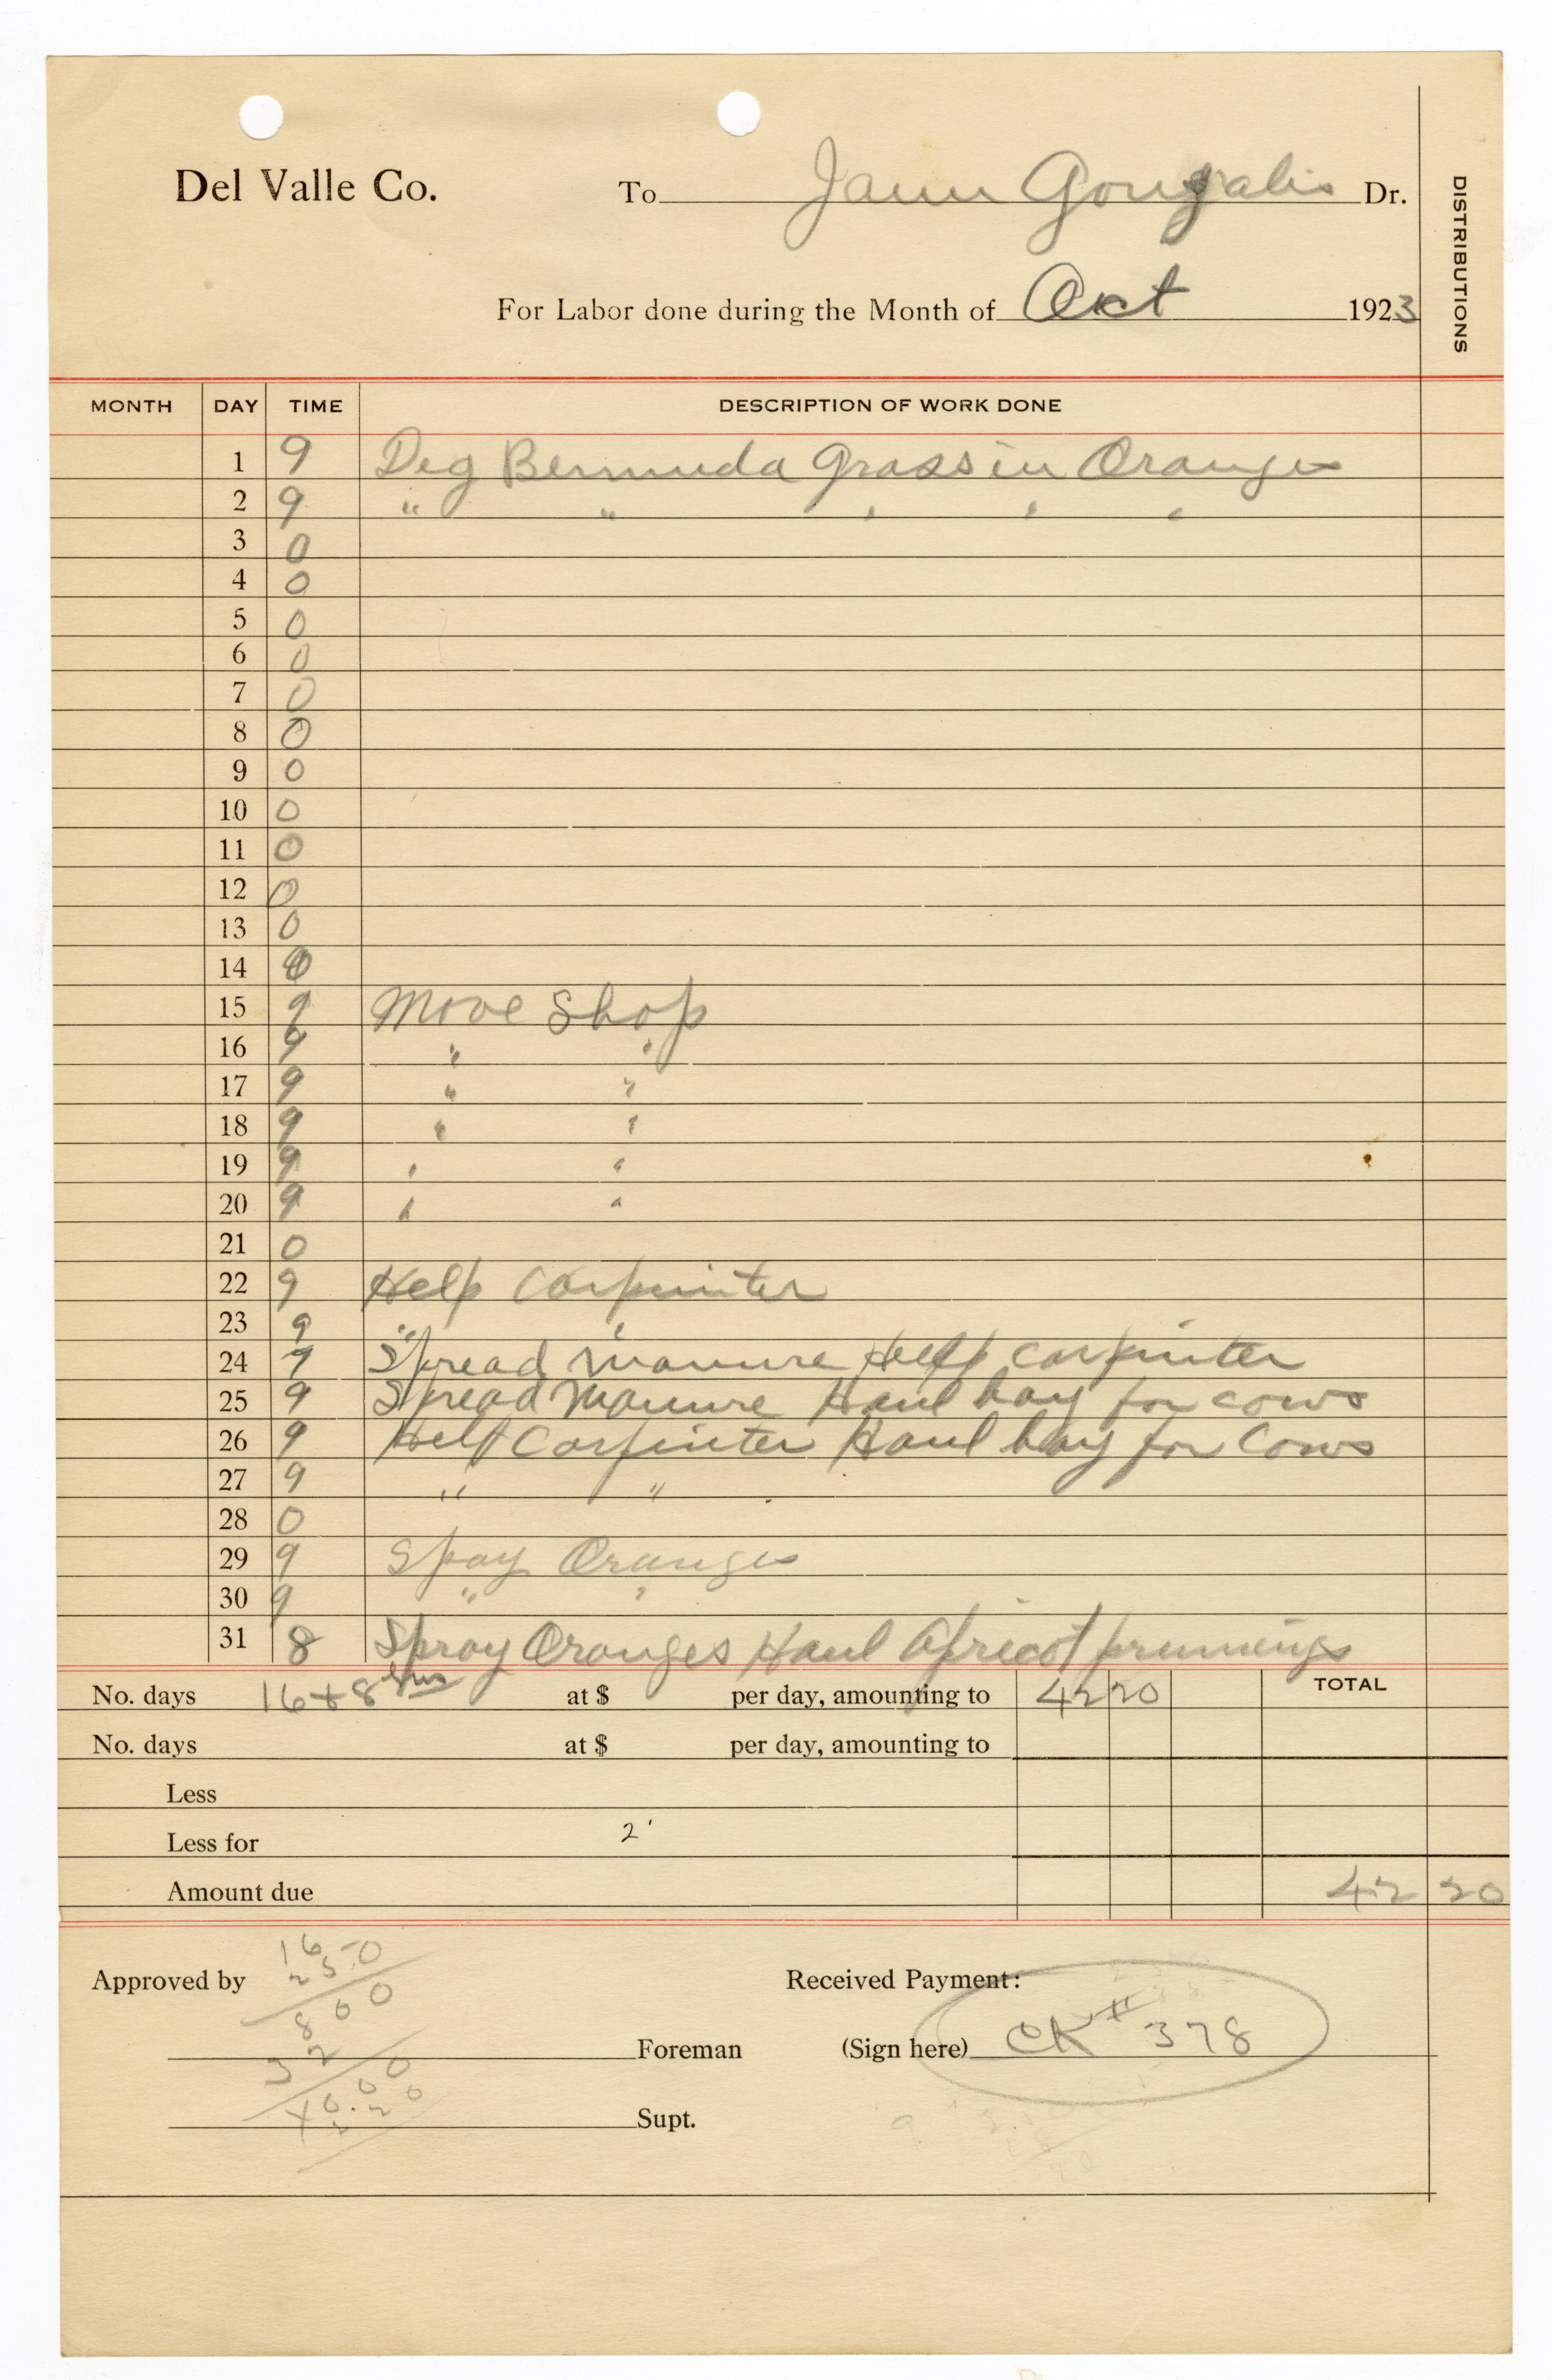 Del Valle Co. To Juan Gonzalis Dr.
DISTRIBUTIONS
For Labor done during the Month of Oct 1923
MONTH DAY TIME DESCRIPTION OF WORK DONE
1 9 Deg Bermuda Grass in Oranges
2 9 " " " " "
3 0
4 0
5 0
6 0
7 0
8 0
9 0
10 0
11 0
12 0
13 0
14 0
15 9 Move Shop
16 9 " "
17 9 " "
18 9 " "
19 9 " "
20 9 " "
21 0
22 9 Help Carpinter
23 9 " "
24 9 Spread Manure Help Carpinter
25 9 Spread Manure Haul hay for cows
26 9 Help Carpinter Haul hay for Cows
27 9 " "
28 0
29 9 Spay Oranges
30 9 " "
31 8 Spray Oranges Haul Apricot prunnings
No. days 16+8 hrs at $ per day, amounting to 42 20 TOTAL
No. days at $ per day, amounting to
Less
Less for 2'
Amount due 42 20
16
250
Approved by Received Payment:
800
32
Foreman (Sign here) CK # 378
40.00
2 20
Supt.